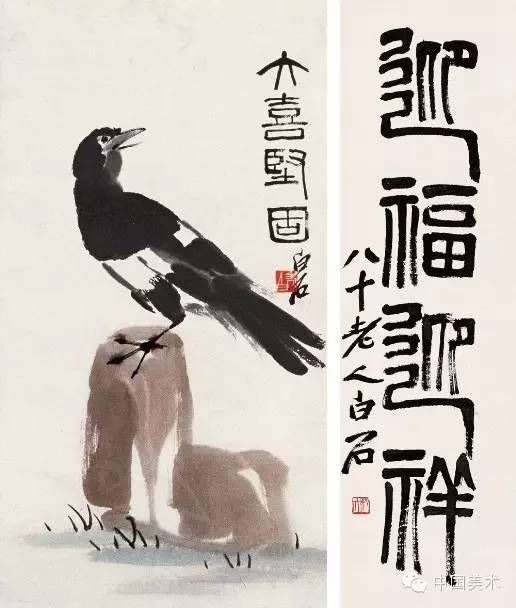 大喜堅固
白石
迎福迎祥
八十老人白石
中国美术